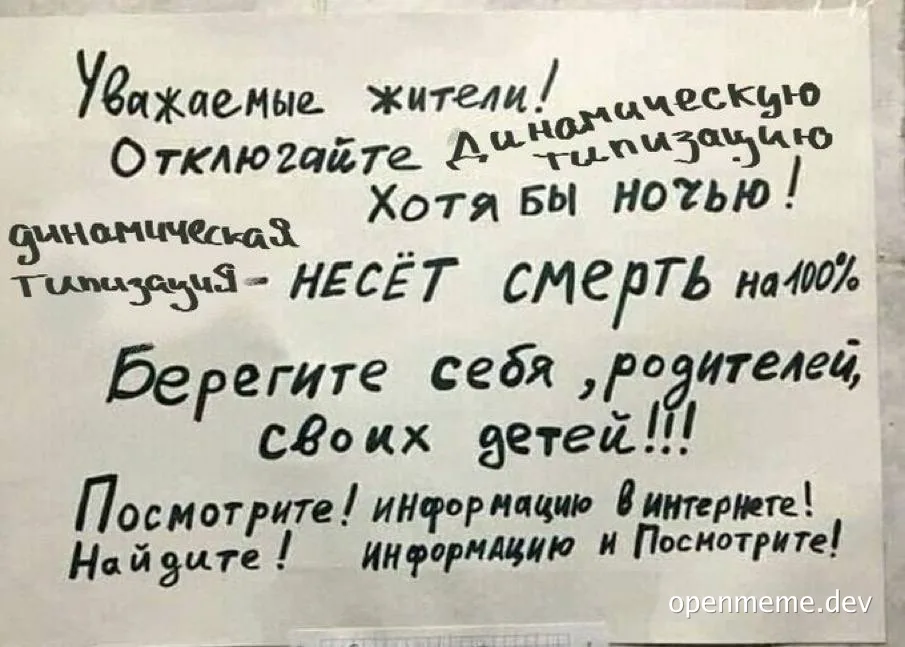 Уважаемые жители!
Отключайте динамическую
типизацию
Хотя бы ночью!
динамическая
типизация - НЕСЁТ смерть на 100%
Берегите себя, родителей,
своих детей!!!
Посмотрите! информацию в интернете!
Найдите! информацию и Посмотрите!
openmeme.dev